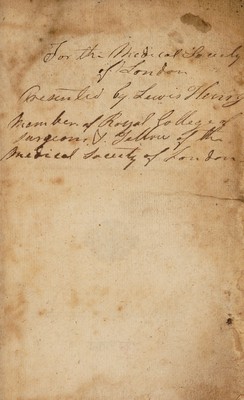 For the Medical Society
of London
Presented by Lewis Henry
Member of Royal College of
Surgeons & Fellow of the
Medical Society of London